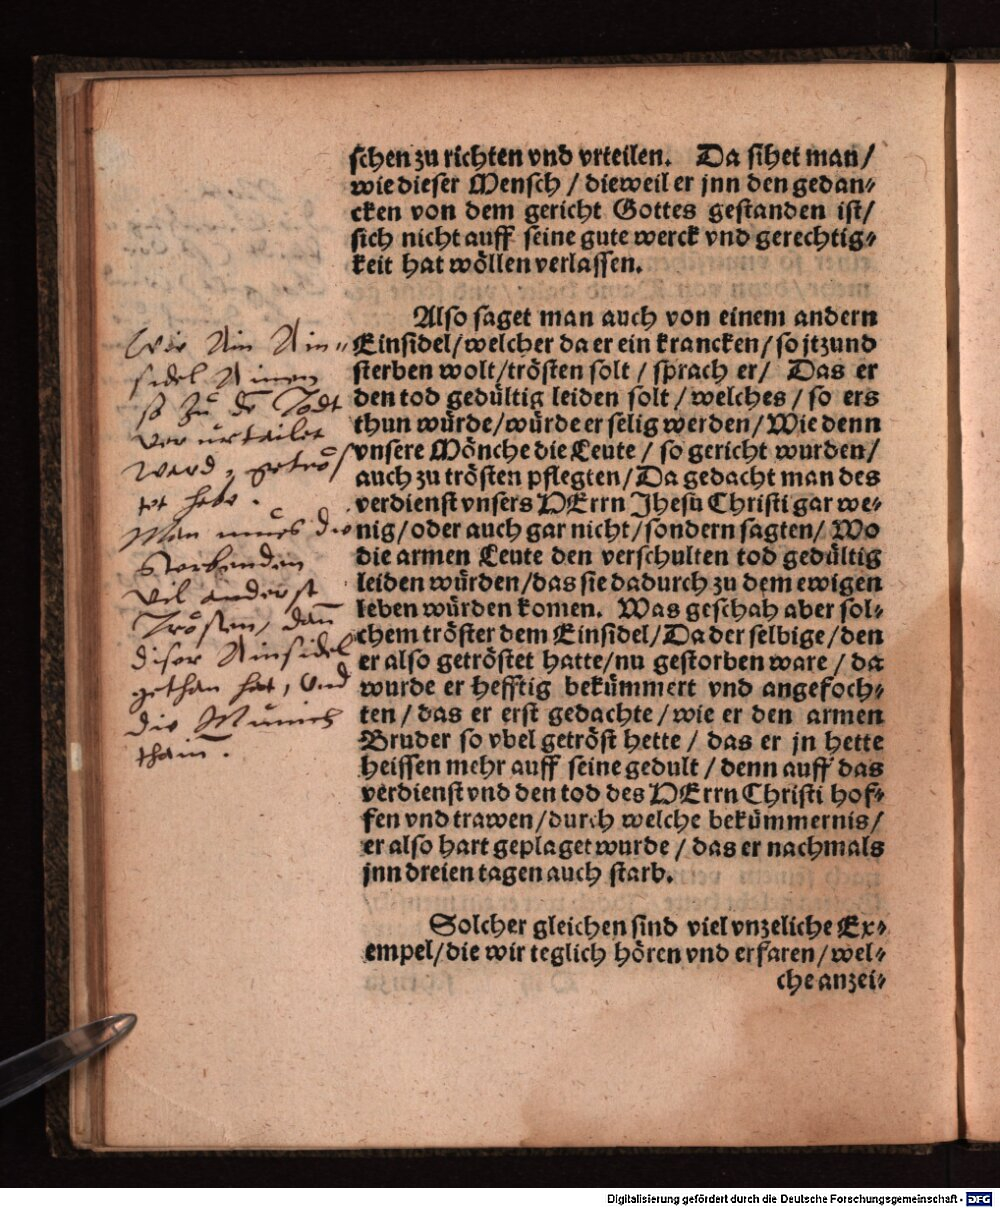 schen zu richten vnd vrteilen. Da sihet man/
wie dieser Mensch / dieweil er jnn den gedan⸗
cken von dem gericht Gottes gestanden ist/
sich nicht auff seine gute werck vnd gerechtig⸗
keit hat wöllen verlassen.
Also saget man auch von einem andern
Einsidel/welcher da er ein krancken/so jtzund
sterben wolt/trösten solt / sprach er/ Das er
den tod gedültig leiden solt / welches / so ers
thun würde/würde er selig werden/Wie denn
vnsere Mönche die Leute / so gericht wurden/
auch zu trösten pflegten/Da gedacht man des
verdienst vnsers HErrn Jhesu Christi gar we⸗
nig/oder auch gar nicht/sondern sagten/ Wo
die armen Leute den verschulten tod gedültig
leiden würden/das sie dadurch zu dem ewigen
leben würden komen. Was geschah aber sol⸗
chem tröster dem Einsidel/Da der selbige/den
er also getröstet hatte/nu gestorben ware / da
wurde er hefftig bekümmert vnd angefoch⸗
ten / das er erst gedachte / wie er den armen
Bruder so vbel getröst hette / das er jn hette
heissen mehr auff seine gedult / denn auff das
verdienst vnd den tod des HErrn Christi hof⸗
fen vnd trawen/durch welche bekümmernis/
er also hart geplaget wurde / das er nachmals
jnn dreien tagen auch starb.
Solcher gleichen sind viel vnzeliche Ex⸗
empel/die wir teglich hören vnd erfaren/wel⸗
che anzei⸗
Wie Ain Ain⸗
sidel Ainen
so zu de Todt
verurtailet
ward, getrös
tet habe.
Man mues die
Sterbenden
vil anderst
Trösten, dan̄
diser Ainsidel
gethan hat, vnd
die Münich
thain.
Digitalisierung gefördert durch die Deutsche Forschungsgemeinschaft - DFG